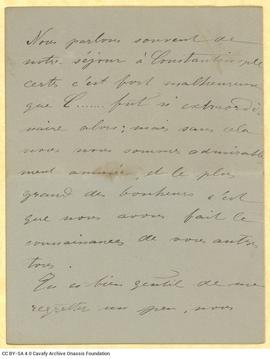 Nous parlons souvent de
notre séjour à Constantinople
certes c'est fort malheureux
que C....... fut si extraordi
naire alors; mais sans cela
nous nous sommes admirable
ment amusé, et le plus
grand des bonheurs c'est
que nous avons fait la
connaissances de vous autres
tous.
Tu es bien gentil de me
regretter un peu, nous
CC BY-SA 4.0 Cavafy Archive Onassis Foundation